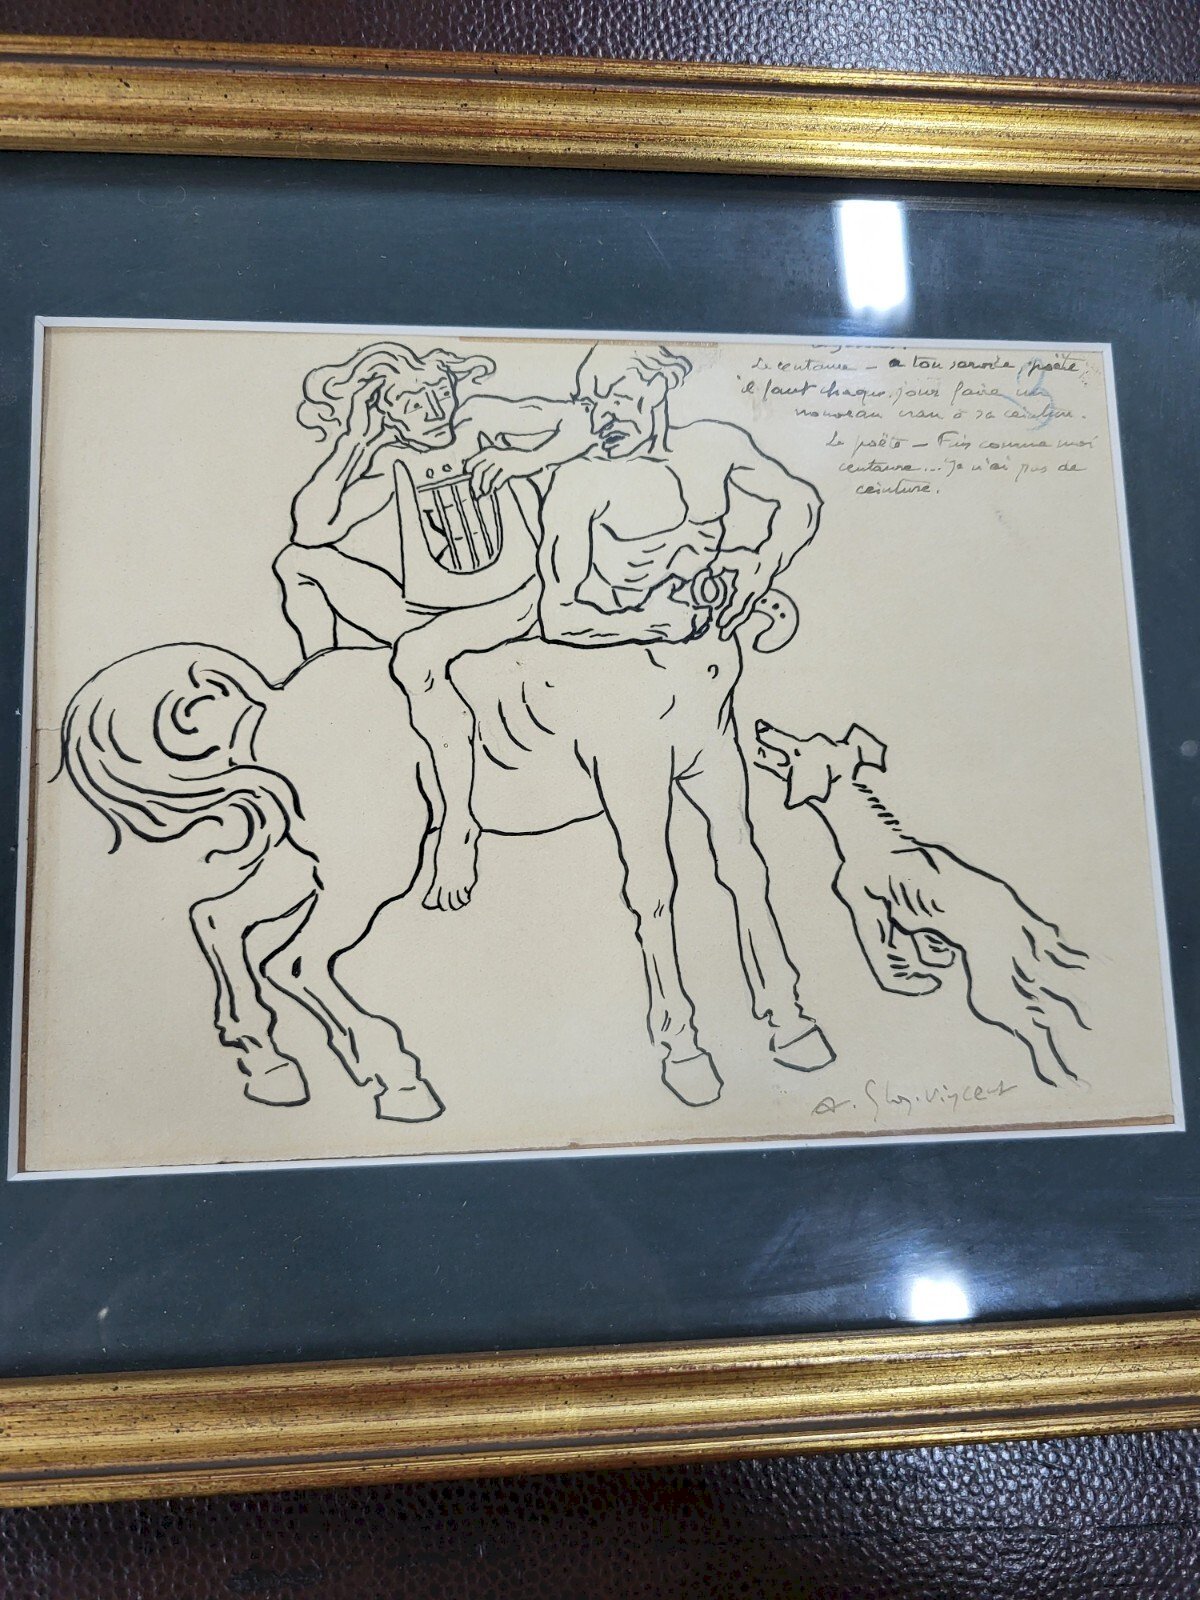 Le centaure – a ton service poëte,
il faut chaque jour faire un
nouveau cran à sa ceinture.
Le poëte – Fais comme moi
centaure... Je n'ai pas de
ceinture.
A. Glory. Vincent